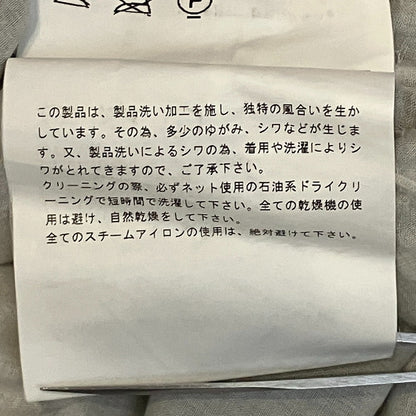 この製品は、製品洗い加工を施し、独特の風合いを生か
しています。その為、多少のゆがみ、シワなどが生じま
す。又、製品洗いによるシワの為、着用や洗濯によりシ
ワがとれてきますので、ご了承下さい。
クリーニングの際、必ずネット使用の石油系ドライクリ
ーニングで短時間で洗濯して下さい。全ての乾燥機の使
用は避け、自然乾燥をして下さい。
全てのスチームアイロンの使用は、絶対避けて下さい。